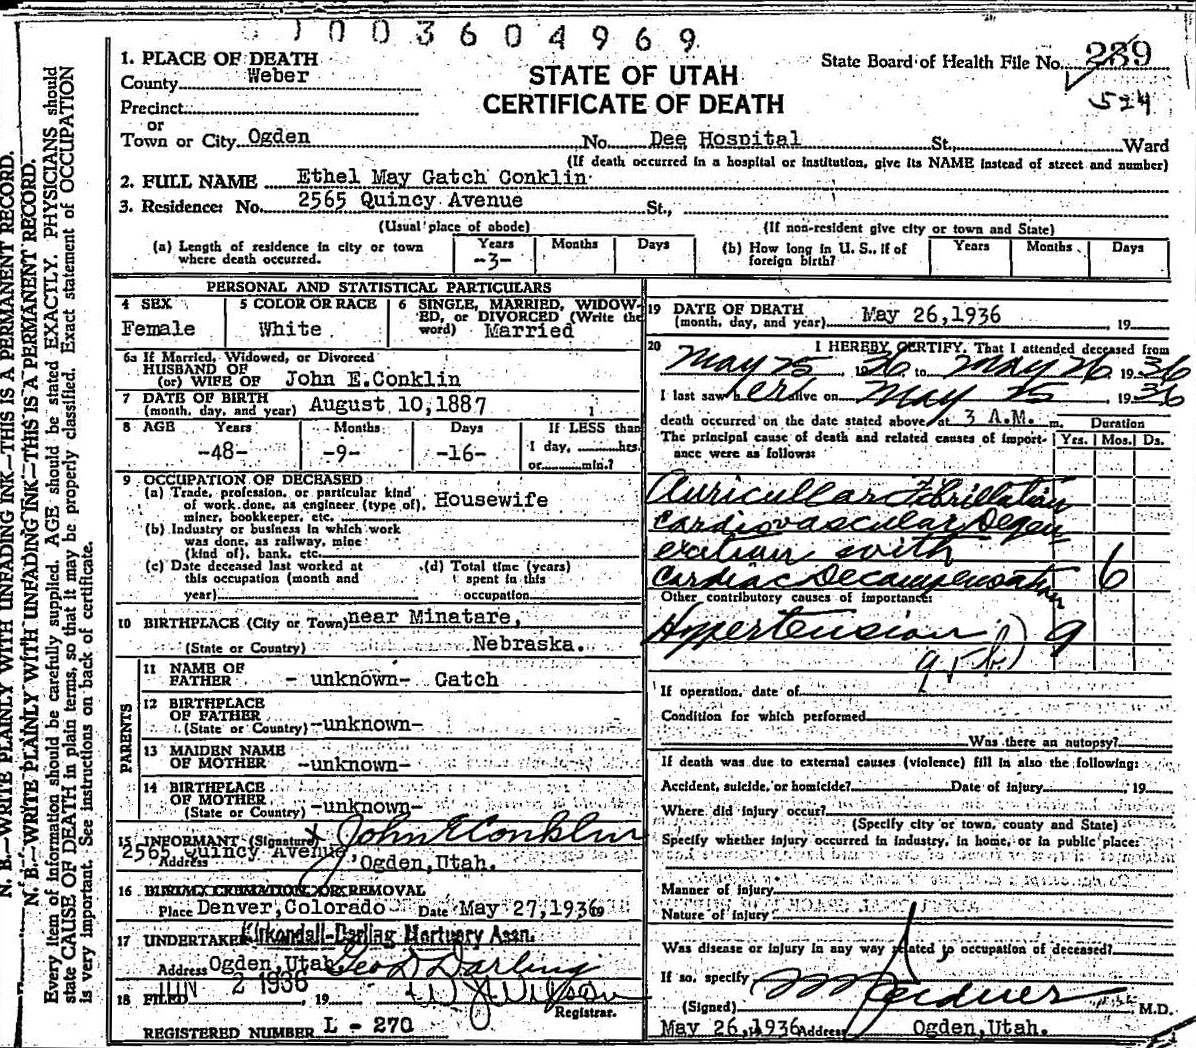 1003604969
1. PLACE OF DEATH
County Weber
Precinct
or
Town or City Ogden No. Dee Hospital St., Ward
(If death occurred in a hospital or institution, give its NAME instead of street and number)
STATE OF UTAH
CERTIFICATE OF DEATH
State Board of Health File No. 289
524
2. FULL NAME Ethel May Gatch Conklin
3. Residence: No. 2565 Quincy Avenue St.,
(Usual place of abode) (If non-resident give city or town and State)
(a) Length of residence in city or town where death occurred. Years -3- Months Days
(b) How long in U. S., if of foreign birth? Years Months Days
PERSONAL AND STATISTICAL PARTICULARS
4 SEX Female
5 COLOR OR RACE White
6 SINGLE, MARRIED, WIDOW-
ED, or DIVORCED (Write the
word) Married
6a If Married, Widowed, or Divorced
HUSBAND OF
(or) WIFE OF John E.Conklin
7 DATE OF BIRTH
(month, day, and year) August 10,1887
8 AGE Years Months Days If LESS than
-48- -9- -16- 1 day, hrs.
or min.?
9 OCCUPATION OF DECEASED
(a) Trade, profession, or particular kind
of work done, as engineer (type of), Housewife
miner, bookkeeper, etc.
(b) Industry or business in which work
was done, as railway, mine
(kind of), bank, etc.
(c) Date deceased last worked at
this occupation (month and
year)
(d) Total time (years)
spent in this
occupation
10 BIRTHPLACE (City or Town) near Minatare,
(State or Country) Nebraska.
PARENTS
11 NAME OF
FATHER - unknown- Gatch
12 BIRTHPLACE
OF FATHER
(State or Country) -unknown-
13 MAIDEN NAME
OF MOTHER -unknown-
14 BIRTHPLACE
OF MOTHER
(State or Country) -unknown-
15 INFORMANT (Signature) x John E Conklin
2565 Quincy Avenue,
Address Ogden,Utah.
16 BURIAL, CREMATION, OR REMOVAL
Place Denver,Colorado Date May 27,1936 19
17 UNDERTAKER Kirkendall-Darling Mortuary Assn.
Address Ogden,Utah Geo D Darling
18 FILED JUN 2 1936, 19
Registrar.
REGISTERED NUMBER L - 270
19 DATE OF DEATH
(month, day, and year) May 26,1936 , 19
20 I HEREBY CERTIFY, That I attended deceased from
May 25 1936 to May 26 1936
I last saw her alive on May 25 1936
death occurred on the date stated above, at 3 A.M. m.
The principal cause of death and related causes of import-
ance were as follows:
Duration
Yrs. Mos. Ds.
Auricullar Fibrillation
Cardiovascular Degen
eration with
Cardiac Decompensation 6
Other contributory causes of importance:
Hypertension 9
If operation, date of
Condition for which performed
Was there an autopsy?
If death was due to external causes (violence) fill in also the following:
Accident, suicide, or homicide? Date of injury 19
Where did injury occur?
(Specify city or town, county and State)
Specify whether injury occurred in industry, in home, or in public place:
Manner of injury
Nature of injury
Was disease or injury in any way related to occupation of deceased?
If so, specify
(Signed) M.D.
May 26,1936 Address Ogden,Utah.
N. B.—WRITE PLAINLY WITH UNFADING INK—THIS IS A PERMANENT RECORD.
N. B.—WRITE PLAINLY WITH UNFADING INK—THIS IS A PERMANENT RECORD.
Every item of information should be carefully supplied. AGE should be stated EXACTLY. PHYSICIANS should
state CAUSE OF DEATH in plain terms, so that it may be properly classified. Exact statement of OCCUPATION
is very important. See instructions on back of certificate.